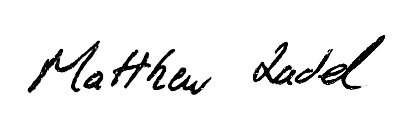 Matthew Ladd